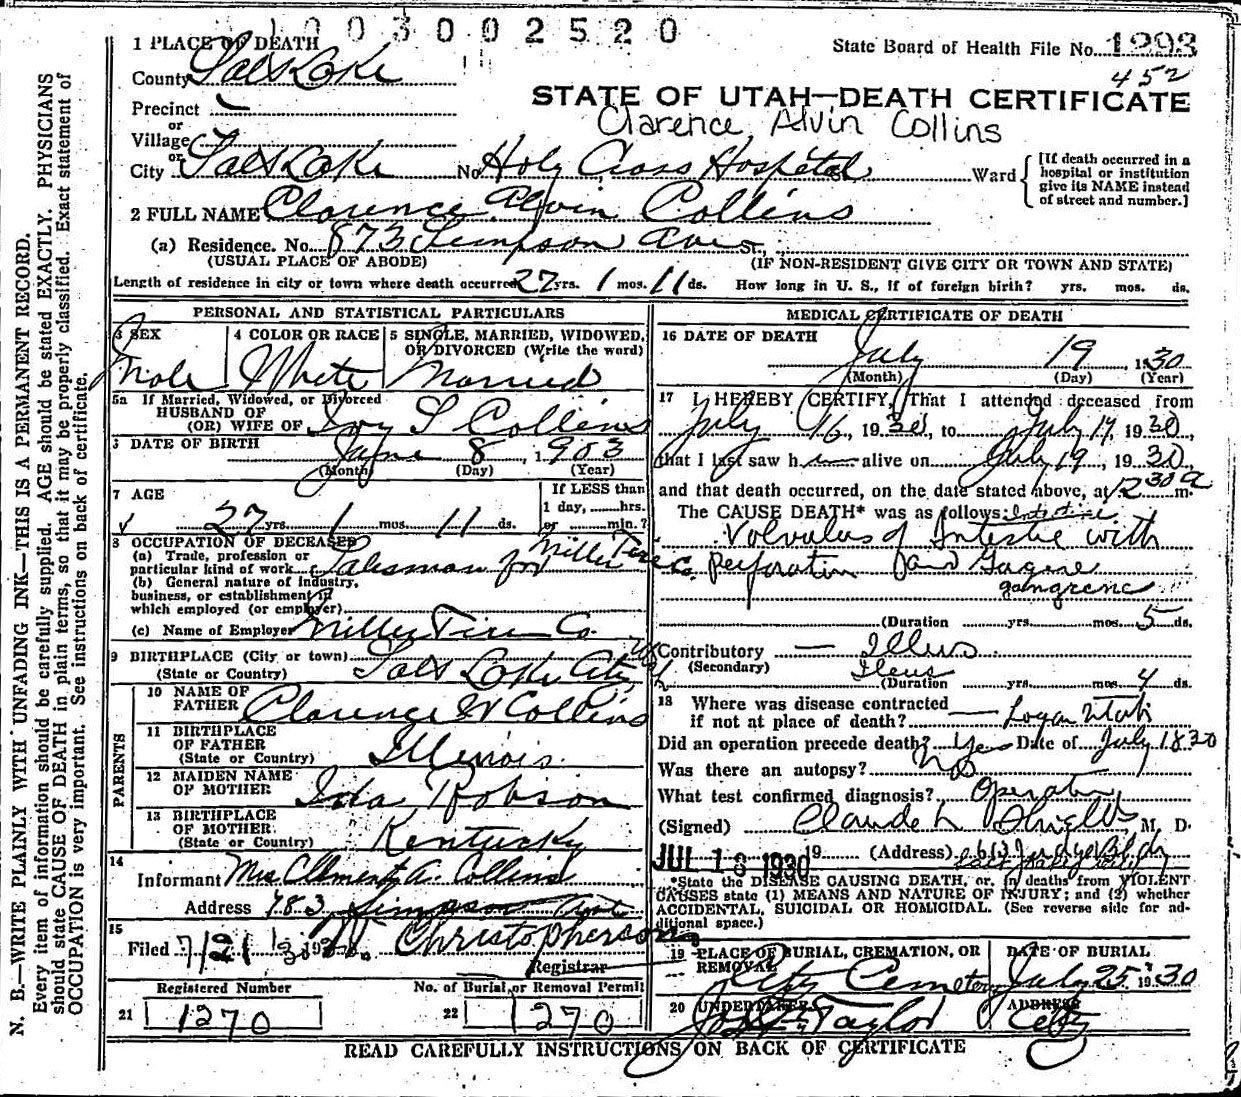 1003002520
State Board of Health File No. 1293
452
STATE OF UTAH—DEATH CERTIFICATE
Clarence Alvin Collins
1 PLACE OF DEATH
County Salt Lake
Precinct
or
Village
or
City Salt Lake No. Holy Cross Hospital St., Ward
[If death occurred in a hospital or institution give its NAME instead of street and number.]
2 FULL NAME Clarence Alvin Collins
(a) Residence. No. 873 Simpson Ave St.,
(USUAL PLACE OF ABODE) (IF NON-RESIDENT GIVE CITY OR TOWN AND STATE)
Length of residence in city or town where death occurred 27 yrs. 1 mos. 11 ds. How long in U. S., if of foreign birth? yrs. mos. ds.
PERSONAL AND STATISTICAL PARTICULARS
3 SEX
Male
4 COLOR OR RACE
White
5 SINGLE, MARRIED, WIDOWED, OR DIVORCED (Write the word)
Married
5a If Married, Widowed, or Divorced
HUSBAND OF
(OR) WIFE OF Ivy S Collins
6 DATE OF BIRTH June 8, 1903
(Month) (Day) (Year)
7 AGE
27 yrs. 1 mos. 11 ds.
If LESS than
1 day, hrs.
or min.?
8 OCCUPATION OF DECEASED
(a) Trade, profession or
particular kind of work Salesman for Miller Tire Co.
(b) General nature of Industry,
business, or establishment in
which employed (or employer)
(c) Name of Employer Miller Tire Co.
9 BIRTHPLACE (City or town)
(State or Country) Salt Lake City
PARENTS
10 NAME OF
FATHER Clarence W Collins
11 BIRTHPLACE
OF FATHER
(State or Country) Illinois.
12 MAIDEN NAME
OF MOTHER Ida Robson
13 BIRTHPLACE
OF MOTHER
(State or Country) Kentucky
14
Informant Mrs Clement A. Collins
Address 783 Simpson Ave
15
Filed 7/21 1930 Christopherson
Registrar
Registered Number No. of Burial or Removal Permit
21 1270 22 1270
MEDICAL CERTIFICATE OF DEATH
16 DATE OF DEATH
July 19 1930
(Month) (Day) (Year)
17 I HEREBY CERTIFY, That I attended deceased from
July 16, 1930, to July 19, 1930,
that I last saw him alive on July 19, 1930
and that death occurred, on the date stated above, at 12 30 a m.
The CAUSE DEATH* was as follows: Intestine
Volvulus of Intestine with
perforation and
gangrene
(Duration yrs. mos. 5 ds.
Contributory — Illeus
(Secondary) Ileus
(Duration yrs. mos. 4 ds.
18 Where was disease contracted
if not at place of death? — Logan Utah
Did an operation precede death? Yes Date of July 18 30
Was there an autopsy? No
What test confirmed diagnosis? Operation
(Signed) Claude L Shields, M. D.
JUL 18 1930 19 (Address) 613 Judge Bldg
*State the DISEASE CAUSING DEATH, or, in deaths from VIOLENT
CAUSES state (1) MEANS AND NATURE OF INJURY; and (2) whether
ACCIDENTAL, SUICIDAL OR HOMICIDAL. (See reverse side for ad-
ditional space.)
19 PLACE OF BURIAL, CREMATION, OR
REMOVAL
City Cemetery
DATE OF BURIAL
July 25 1930
20 UNDERTAKER
Taylor
ADDRESS
City
READ CAREFULLY INSTRUCTIONS ON BACK OF CERTIFICATE
N. B.—WRITE PLAINLY WITH UNFADING INK—THIS IS A PERMANENT RECORD.
Every item of information should be carefully supplied. AGE should be stated EXACTLY. PHYSICIANS
should state CAUSE OF DEATH in plain terms, so that it may be properly classified. Exact statement of
OCCUPATION is very important. See instructions on back of certificate.